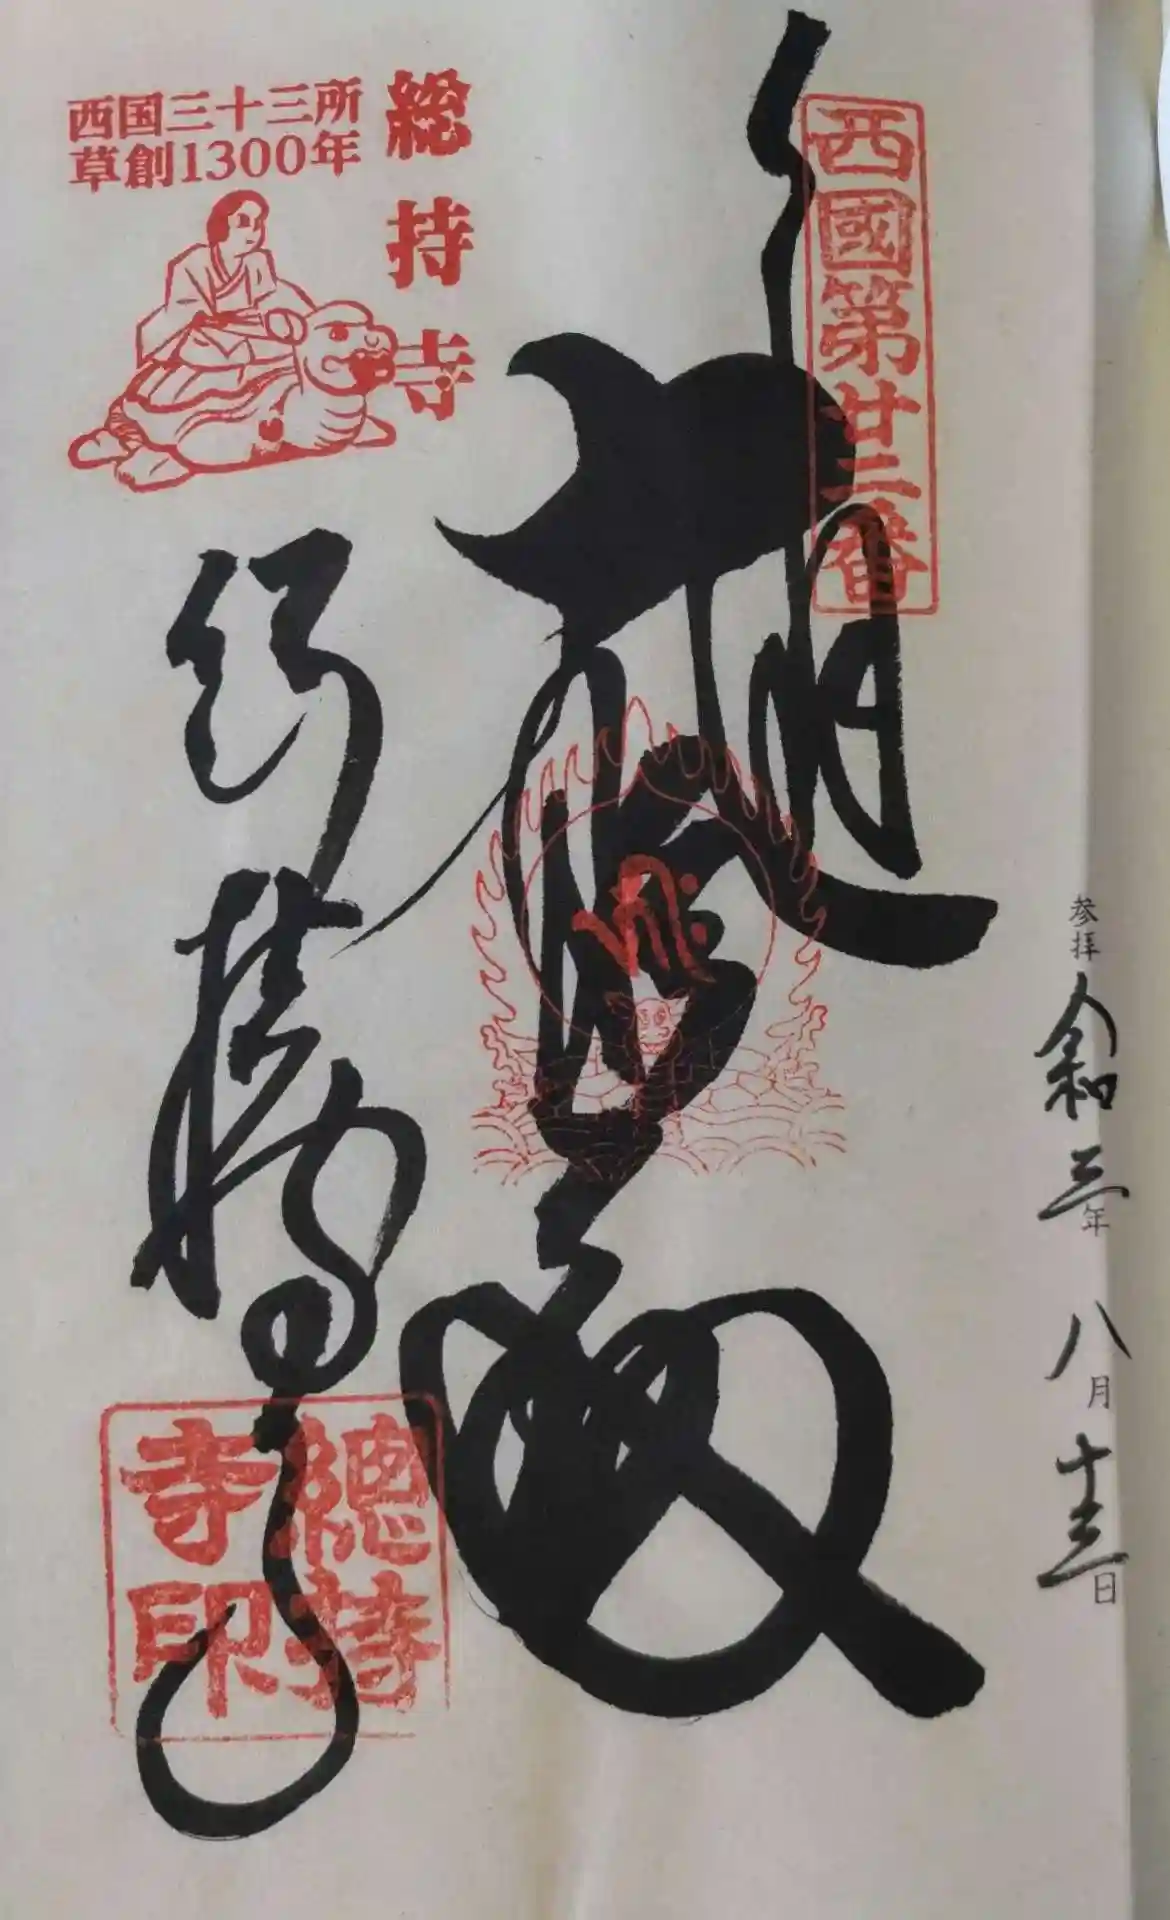 西國第廿二番
総持寺
西国三十三所
草創1300年
総持寺
總持
寺印
参拝 令和三年 八月 十三日